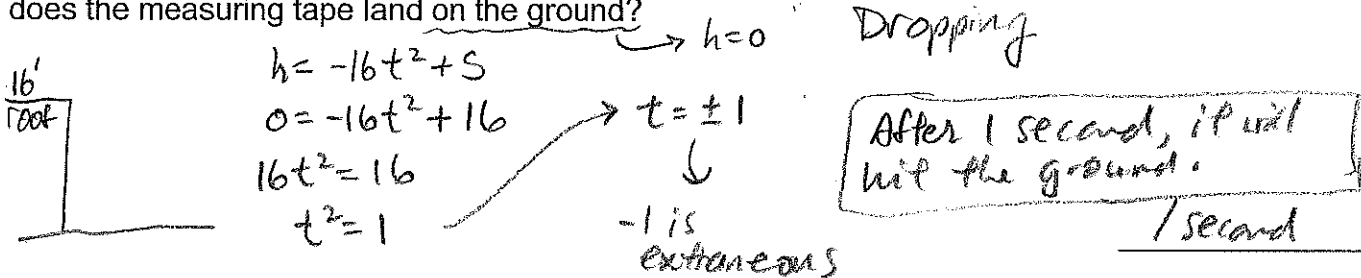 does the measuring tape land on the ground?
h=0
Dropping
16'
roof
h= -16t²+s
0= -16t²+16
16t²= 16
t²= 1
t= ± 1
-1 is
extraneous
After 1 second, it will
hit the ground.
1 second